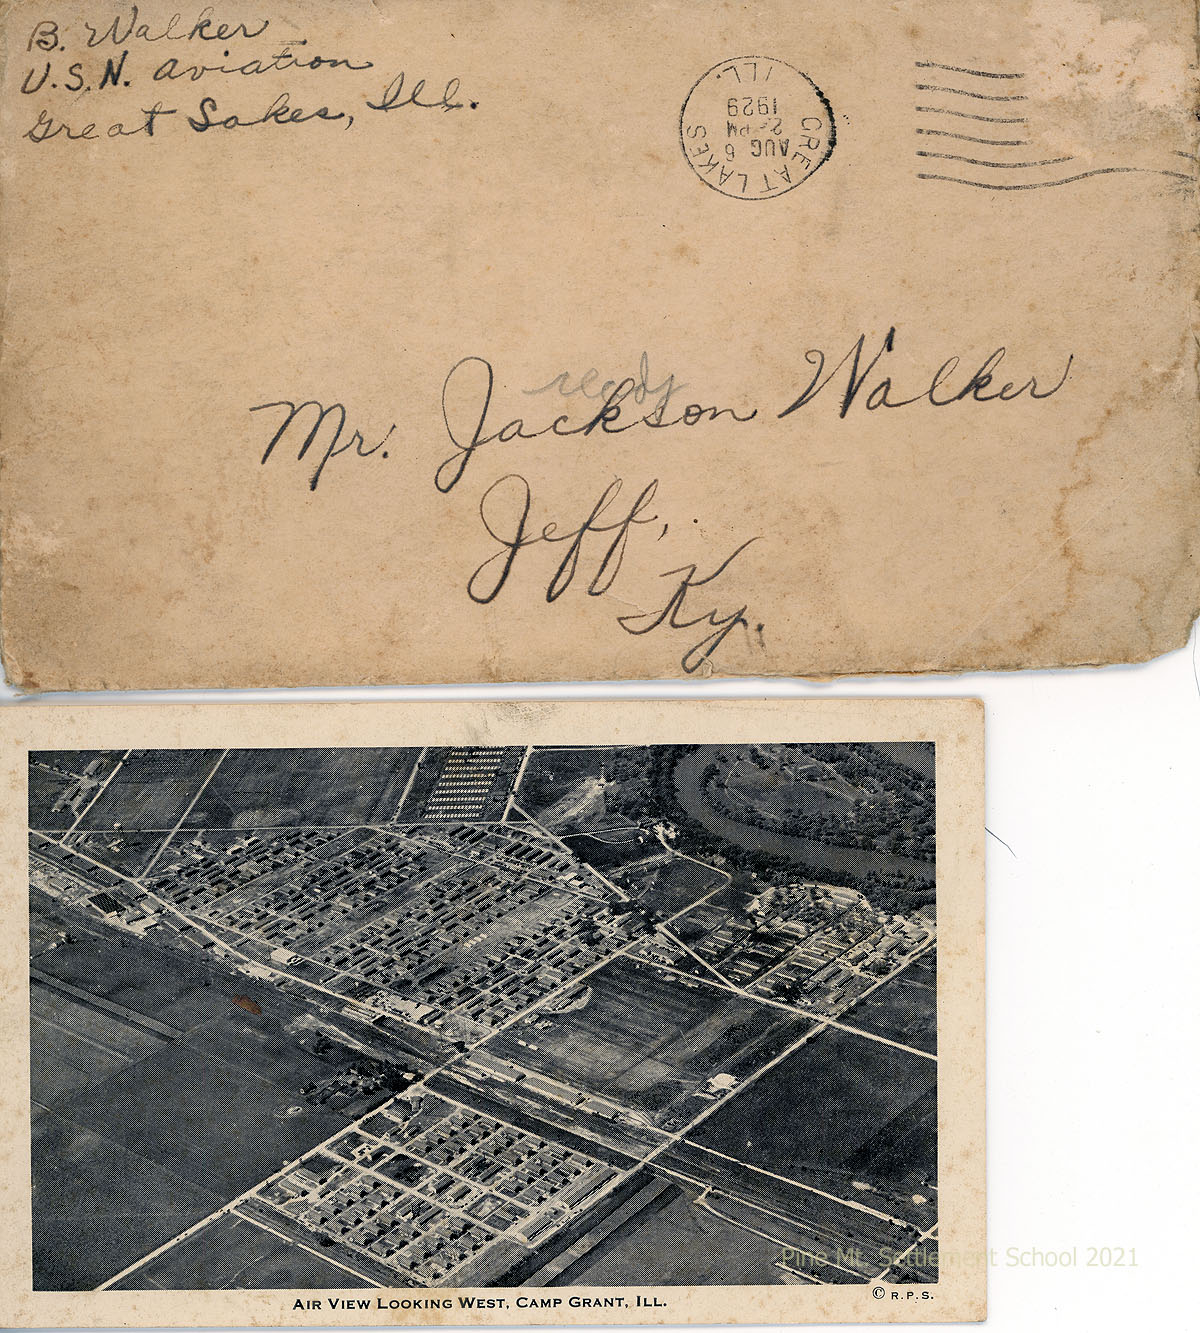 B. Walker
U.S.N. Aviation
Great Lakes, Ill.
GREAT LAKES
AUG 6
PM
1929
ILL.
ready
Mr. Jackson Walker
Jeff,
Ky.
Pine Mt. Settlement School 2021
AIR VIEW LOOKING WEST, CAMP GRANT, ILL.
© R.P.S.